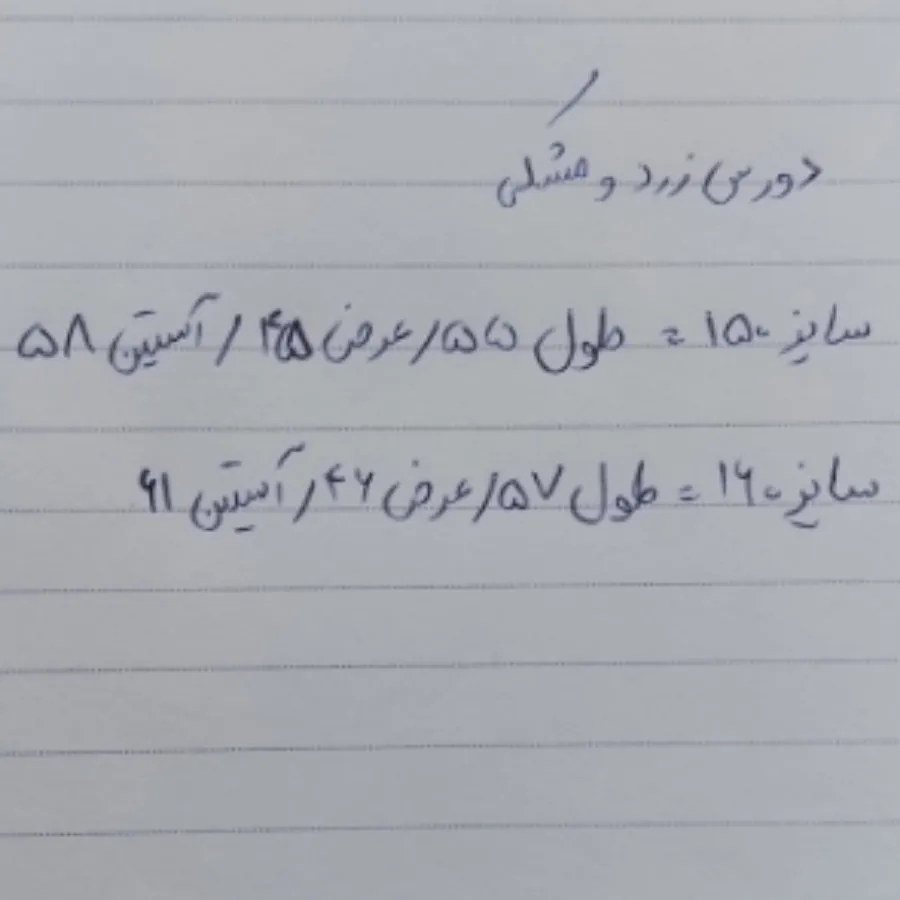 دورس زرد و مشکی
سایز ۱۵۰ = طول ۵۵ / عرض ۴۵ / آستین ۵۸
سایز ۱۶۰ = طول ۵۷ / عرض ۴۶ / آستین ۶۱